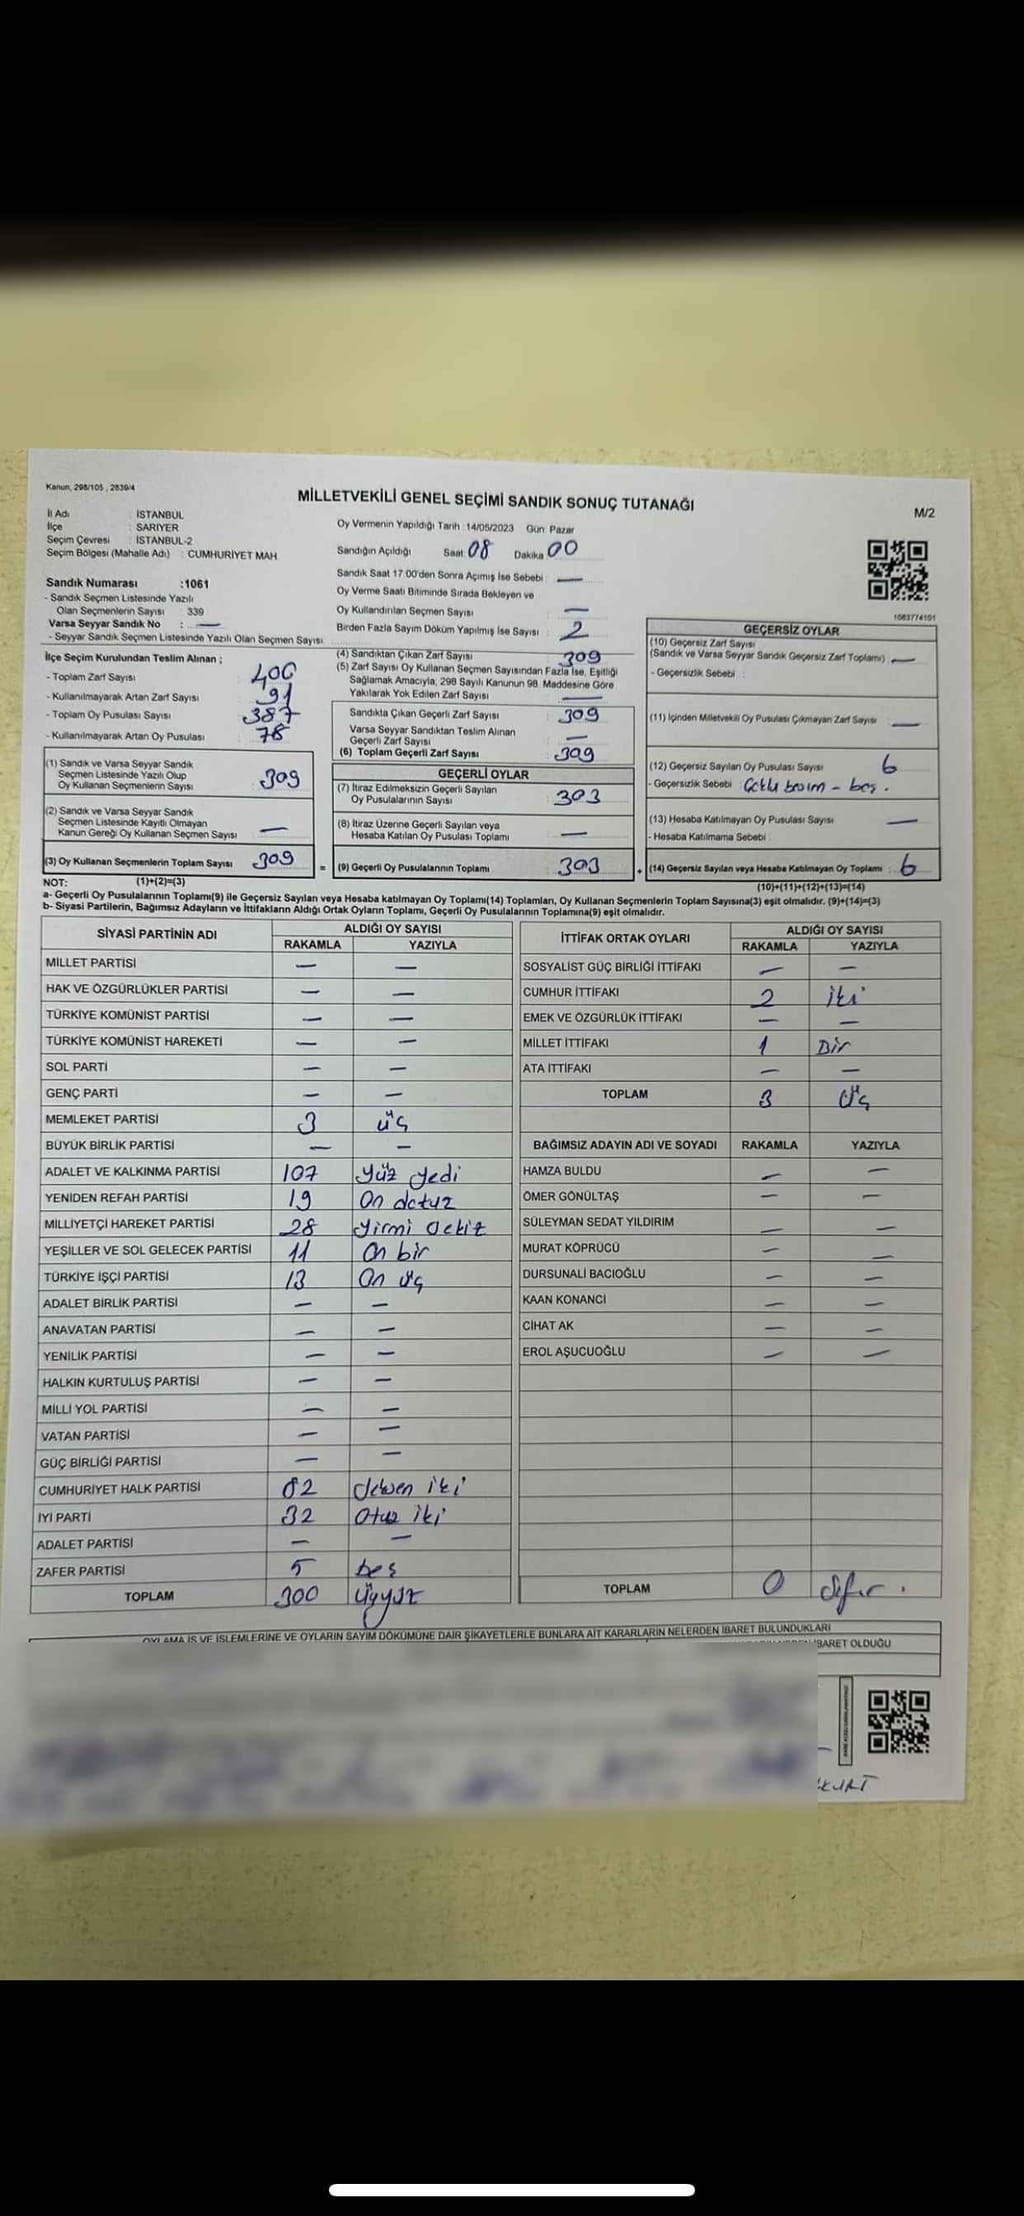 Kanun, 298/105 , 2839/4
MİLLETVEKİLİ GENEL SEÇİMİ SANDIK SONUÇ TUTANAĞI
M/2
İl Adı : İSTANBUL
İlçe : SARIYER
Seçim Çevresi : İSTANBUL-2
Seçim Bölgesi (Mahalle Adı) : CUMHURİYET MAH
Sandık Numarası :1061
- Sandık Seçmen Listesinde Yazılı
Olan Seçmenlerin Sayısı 339
Varsa Seyyar Sandık No : —
- Seyyar Sandık Seçmen Listesinde Yazılı Olan Seçmen Sayısı
Oy Vermenin Yapıldığı Tarih : 14/05/2023 Gün: Pazar
Sandığın Açıldığı Saat 08 Dakika 00
Sandık Saat 17.00'den Sonra Açımış İse Sebebi : —
Oy Verme Saati Bitiminde Sırada Bekleyen ve
Oy Kullandırılan Seçmen Sayısı —
Birden Fazla Sayım Döküm Yapılmış İse Sayısı : 2
1083774101
İlçe Seçim Kurulundan Teslim Alınan ;
- Toplam Zarf Sayısı 400
- Kullanılmayarak Artan Zarf Sayısı 91
- Toplam Oy Pusulası Sayısı 387
- Kullanılmayarak Artan Oy Pusulası 78
(1) Sandık ve Varsa Seyyar Sandık
Seçmen Listesinde Yazılı Olup
Oy Kullanan Seçmenlerin Sayısı : 309
(2) Sandık ve Varsa Seyyar Sandık
Seçmen Listesinde Kayıtlı Olmayan
Kanun Gereği Oy Kullanan Seçmen Sayısı : —
(3) Oy Kullanan Seçmenlerin Toplam Sayısı : 309 =
(4) Sandıktan Çıkan Zarf Sayısı 309
(5) Zarf Sayısı Oy Kullanan Seçmen Sayısından Fazla İse, Eşitliği
Sağlamak Amacıyla, 298 Sayılı Kanunun 98. Maddesine Göre
Yakılarak Yok Edilen Zarf Sayısı —
Sandıkta Çıkan Geçerli Zarf Sayısı : 309
Varsa Seyyar Sandıktan Teslim Alınan
Geçerli Zarf Sayısı —
(6) Toplam Geçerli Zarf Sayısı : 309
GEÇERLİ OYLAR
(7) İtiraz Edilmeksizin Geçerli Sayılan
Oy Pusulalarının Sayısı : 303
(8) İtiraz Üzerine Geçerli Sayılan veya
Hesaba Katılan Oy Pusulası Toplamı : —
(9) Geçerli Oy Pusulalarının Toplamı : 303 +
GEÇERSİZ OYLAR
(10) Geçersiz Zarf Sayısı
(Sandık ve Varsa Seyyar Sandık Geçersiz Zarf Toplamı) : —
- Geçersizlik Sebebi :
(11) İçinden Milletvekili Oy Pusulası Çıkmayan Zarf Sayısı : —
(12) Geçersiz Sayılan Oy Pusulası Sayısı : 6
- Geçersizlik Sebebi : - boş .
(13) Hesaba Katılmayan Oy Pusulası Sayısı : —
- Hesaba Katılmama Sebebi :
(14) Geçersiz Sayılan veya Hesaba Katılmayan Oy Toplamı : 6
NOT: (1)+(2)=(3)
(10)+(11)+(12)+(13)=(14)
a- Geçerli Oy Pusulalarının Toplamı(9) ile Geçersiz Sayılan veya Hesaba katılmayan Oy Toplamı(14) Toplamları, Oy Kullanan Seçmenlerin Toplam Sayısına(3) eşit olmalıdır. (9)+(14)=(3)
b- Siyasi Partilerin, Bağımsız Adayların ve İttifakların Aldığı Ortak Oyların Toplamı, Geçerli Oy Pusulalarının Toplamına(9) eşit olmalıdır.
SİYASİ PARTİNİN ADI ALDIĞI OY SAYISI
RAKAMLA YAZIYLA
MİLLET PARTİSİ — —
HAK VE ÖZGÜRLÜKLER PARTİSİ — —
TÜRKİYE KOMÜNİST PARTİSİ — —
TÜRKİYE KOMÜNİST HAREKETİ — —
SOL PARTİ — —
GENÇ PARTİ — —
MEMLEKET PARTİSİ 3 üç
BÜYÜK BİRLİK PARTİSİ — —
ADALET VE KALKINMA PARTİSİ 107 Yüz yedi
YENİDEN REFAH PARTİSİ 19 On dokuz
MİLLİYETÇİ HAREKET PARTİSİ 28 Yirmi sekiz
YEŞİLLER VE SOL GELECEK PARTİSİ 11 On bir
TÜRKİYE İŞÇİ PARTİSİ 13 On üç
ADALET BİRLİK PARTİSİ — —
ANAVATAN PARTİSİ — —
YENİLİK PARTİSİ — —
HALKIN KURTULUŞ PARTİSİ — —
MİLLİ YOL PARTİSİ — —
VATAN PARTİSİ — —
GÜÇ BİRLİĞİ PARTİSİ — —
CUMHURİYET HALK PARTİSİ 82 seksen iki
İYİ PARTİ 32 Otuz iki
ADALET PARTİSİ — —
ZAFER PARTİSİ 5 beş
TOPLAM 300 Üçyüz
İTTİFAK ORTAK OYLARI ALDIĞI OY SAYISI
RAKAMLA YAZIYLA
SOSYALİST GÜÇ BİRLİĞİ İTTİFAKI — —
CUMHUR İTTİFAKI 2 iki
EMEK VE ÖZGÜRLÜK İTTİFAKI — —
MİLLET İTTİFAKI 1 Bir
ATA İTTİFAKI — —
TOPLAM 3 Üç
BAĞIMSIZ ADAYIN ADI VE SOYADI RAKAMLA YAZIYLA
HAMZA BULDU — —
ÖMER GÖNÜLTAŞ — —
SÜLEYMAN SEDAT YILDIRIM — —
MURAT KÖPRÜCÜ — —
DURSUNALİ BACIOĞLU — —
KAAN KONANCI — —
CİHAT AK — —
EROL AŞUCUOĞLU — —
TOPLAM 0 sıfır .
OYLAMA İŞ VE İŞLEMLERİNE VE OYLARIN SAYIM DÖKÜMÜNE DAİR ŞİKAYETLERLE BUNLARA AİT KARARLARIN NELERDEN İBARET BULUNDUKLARI
İBARET OLDUĞU
KURT